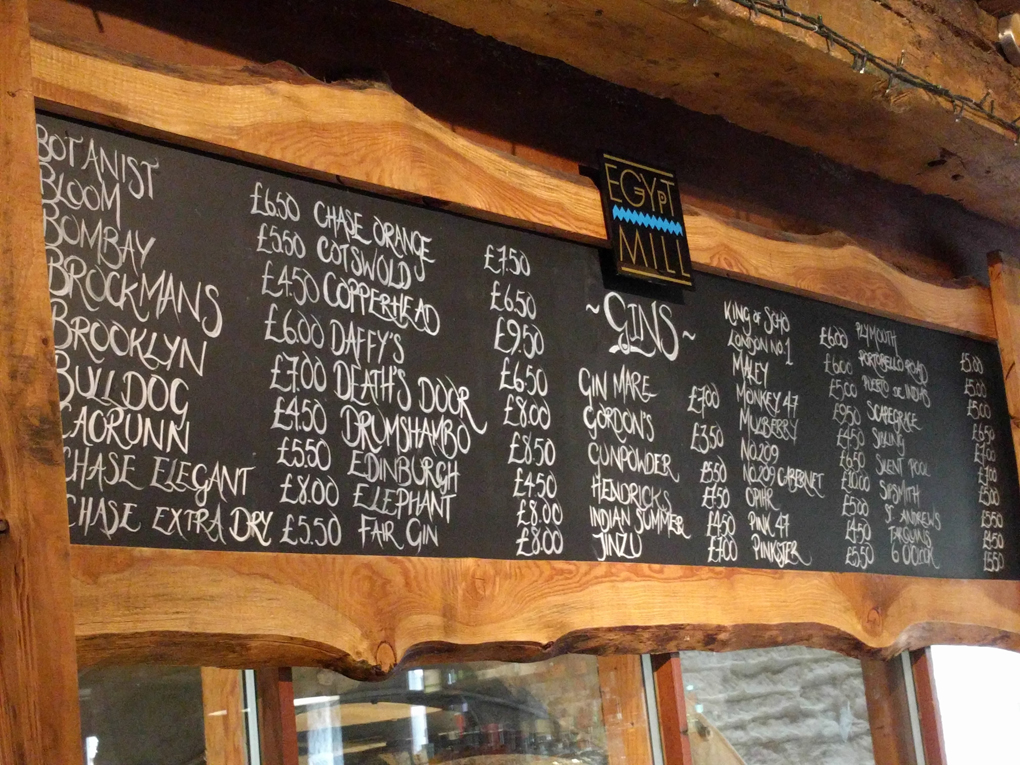 EGYPT
MILL
BOTANIST £6.50
BLOOM £5.50
BOMBAY £4.50
BROCKMANS £6.00
BROOKLYN £7.00
BULLDOG £4.50
CAORUNN £5.50
CHASE ELEGANT £8.00
CHASE EXTRA DRY £5.50
CHASE ORANGE £7.50
COTSWOLD £6.50
COPPERHEAD £9.50
DAFFY'S £6.50
DEATH'S DOOR £8.00
DRUMSHAMBO £8.50
EDINBURGH £4.50
ELEPHANT £8.00
FAIR GIN £8.00
~GINS~
GIN MARE £7.00
GORDON'S £3.50
GUNPOWDER £5.50
HENDRICKS
INDIAN SUMMER £4.50
JINZU
KING OF SOHO £6.00
LONDON NO.1 £6.00
MALEY £5.00
MONKEY 47 £9.50
MULBERRY £4.50
NO.209 £6.50
NO.209 CABERNET £10.00
OPIHR £5.00
PINK 47 £4.50
PINKSTER £5.50
PLYMOUTH £5.00
PORTOBELLO ROAD £5.00
PUERTO DE INDIAS £5.00
SCAPEGRACE £6.50
£7.00
SILENT POOL £7.00
SIPSMITH £5.00
ST. ANDREWS £5.50
TARQUINS £4.50
6 O'CLOCK £5.50